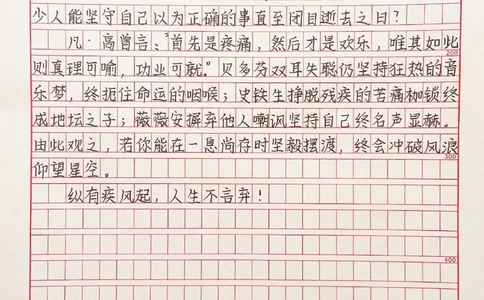 少人能坚守自己以为正确的事直至闭目逝去之日？
凡·高曾言："首先是疼痛，然后才是欢乐，唯其如此
200
则真理可喻，功业可就。"贝多芬双耳失聪仍坚持狂热的音
乐梦，终扼住命运的咽喉；史铁生挣脱残疾的苦痛枷锁终
成地坛之子；薇薇安摒弃他人嘲讽坚持自己终名声显赫。
由此观之，若你能在一息尚存时坚毅摆渡，终会冲破风浪
300
仰望星空。
纵有疾风起，人生不言弃！
400